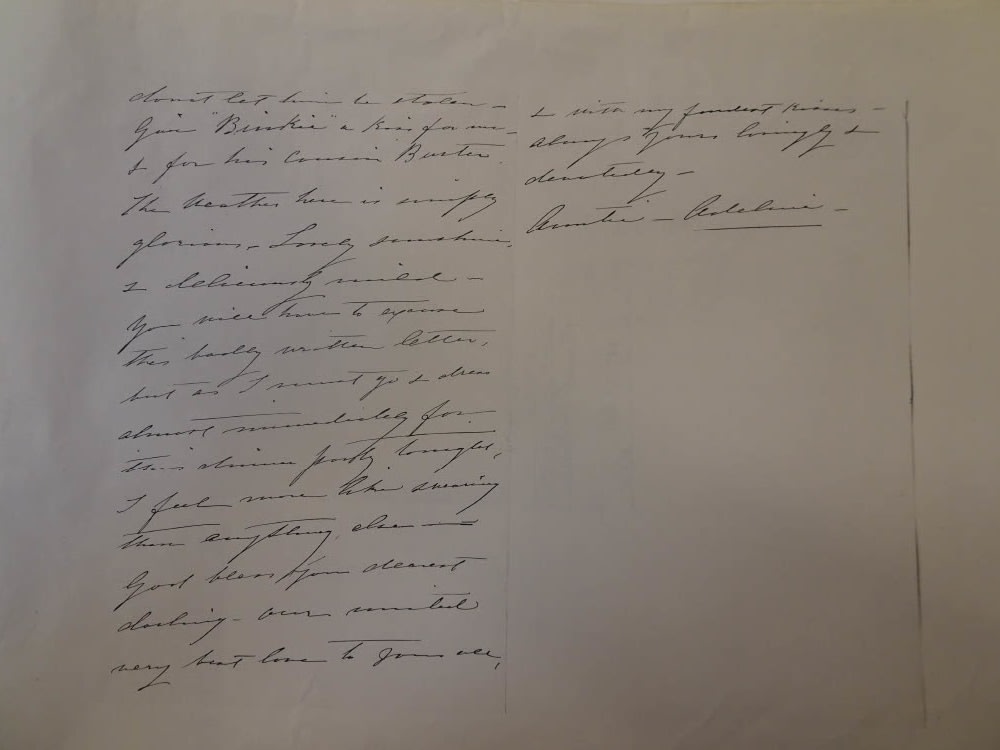 don't let him be stolen -
Give "Binkie" a kiss for me -
& for his cousin Buster.
The weather here is simply
glorious, - Lovely sunshine,
& deliciously mild -
You will have to excuse
this badly written letter,
but as I must go & dress
almost immediately for
this dinner party tonight,
I feel more like swearing
than anything else —
God bless you dearest
darling - our united
very best love to you all,
& with my fondest kisses -
always yours lovingly &
devotedly -
Auntie - Adeline -